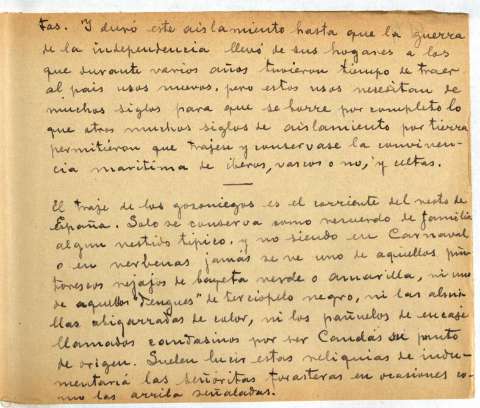 tas. Y duró este aislamiento hasta que la guerra
de la independencia llevó de sus hogares a los
que durante varios años tuvieron tiempo de traer
al pais usos nuevos. pero estos usos necesitan de
muchos siglos para que se borre por completo lo
que otros muchos siglos de aislamiento por tierra
permitieron que trajera y conservase la convinen-
cia maritima de iberos, vascos o no, y celtas.
El traje de los gozoniegos es el corriente del resto de
España. Solo se conserva como recuerdo de familia
algun vestido tipico. y no siendo en Carnaval
o en verbenas jamas se ve uno de aquellos pin-
torescos refajos de bayeta verde o amarilla, ni uno
de aquellos "dengues" de terciopelo negro, ni las almi-
llas abigarradas de color, ni los pañuelos de encaje
llamados candasinos por ser Candás su punto
de origen. Suelen lucir estas reliquias de indu-
mentaria las señoritas forasteras en ocasiones co-
mo las arriba señaladas.